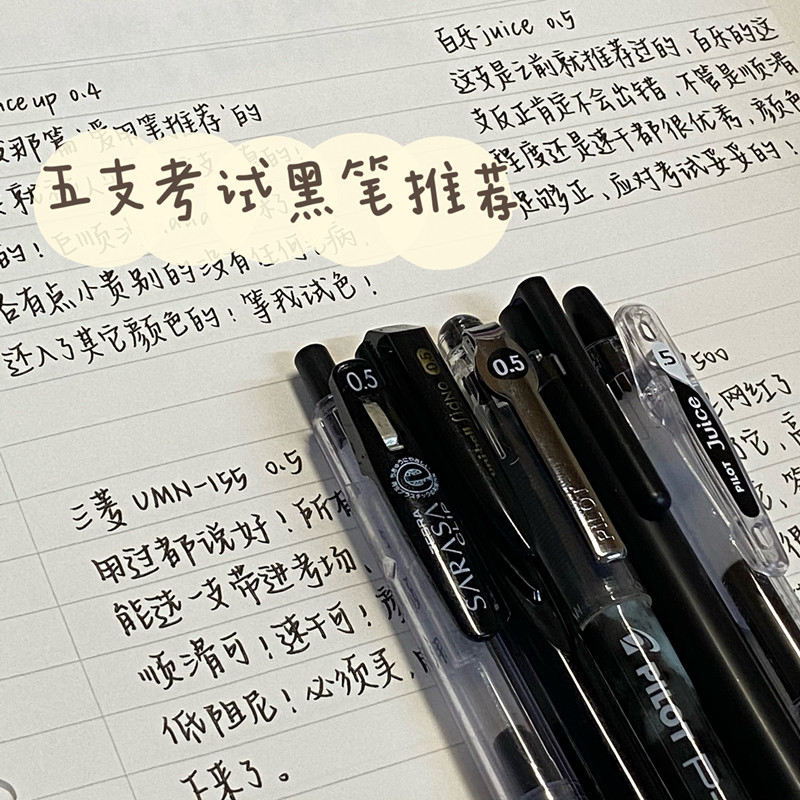 五支考试黑笔推荐
ice up 0.4
那篇“爱用笔推荐”的
的！巨顺
有点小贵别的没有任何 病
还入了其它颜色的！等我试色！
百乐juice 0.5
这支是之前就推荐过的，百乐的这
支反正肯定不会出错，不管是顺滑
程度还是速干都很优秀，颜色
足够正，应对考试妥妥的！
三菱 UMN-155 0.5
用过都说好！所有
能选一支带进考场，
顺滑可！速干可！
低阻尼！必须买，
下来了。
500
网红了
它，
0.5
ZEBRA
SARASA
CLIP
0.5
uni-ball Signo
0.5
PILOT
PILOT
5
Juice
PILOT